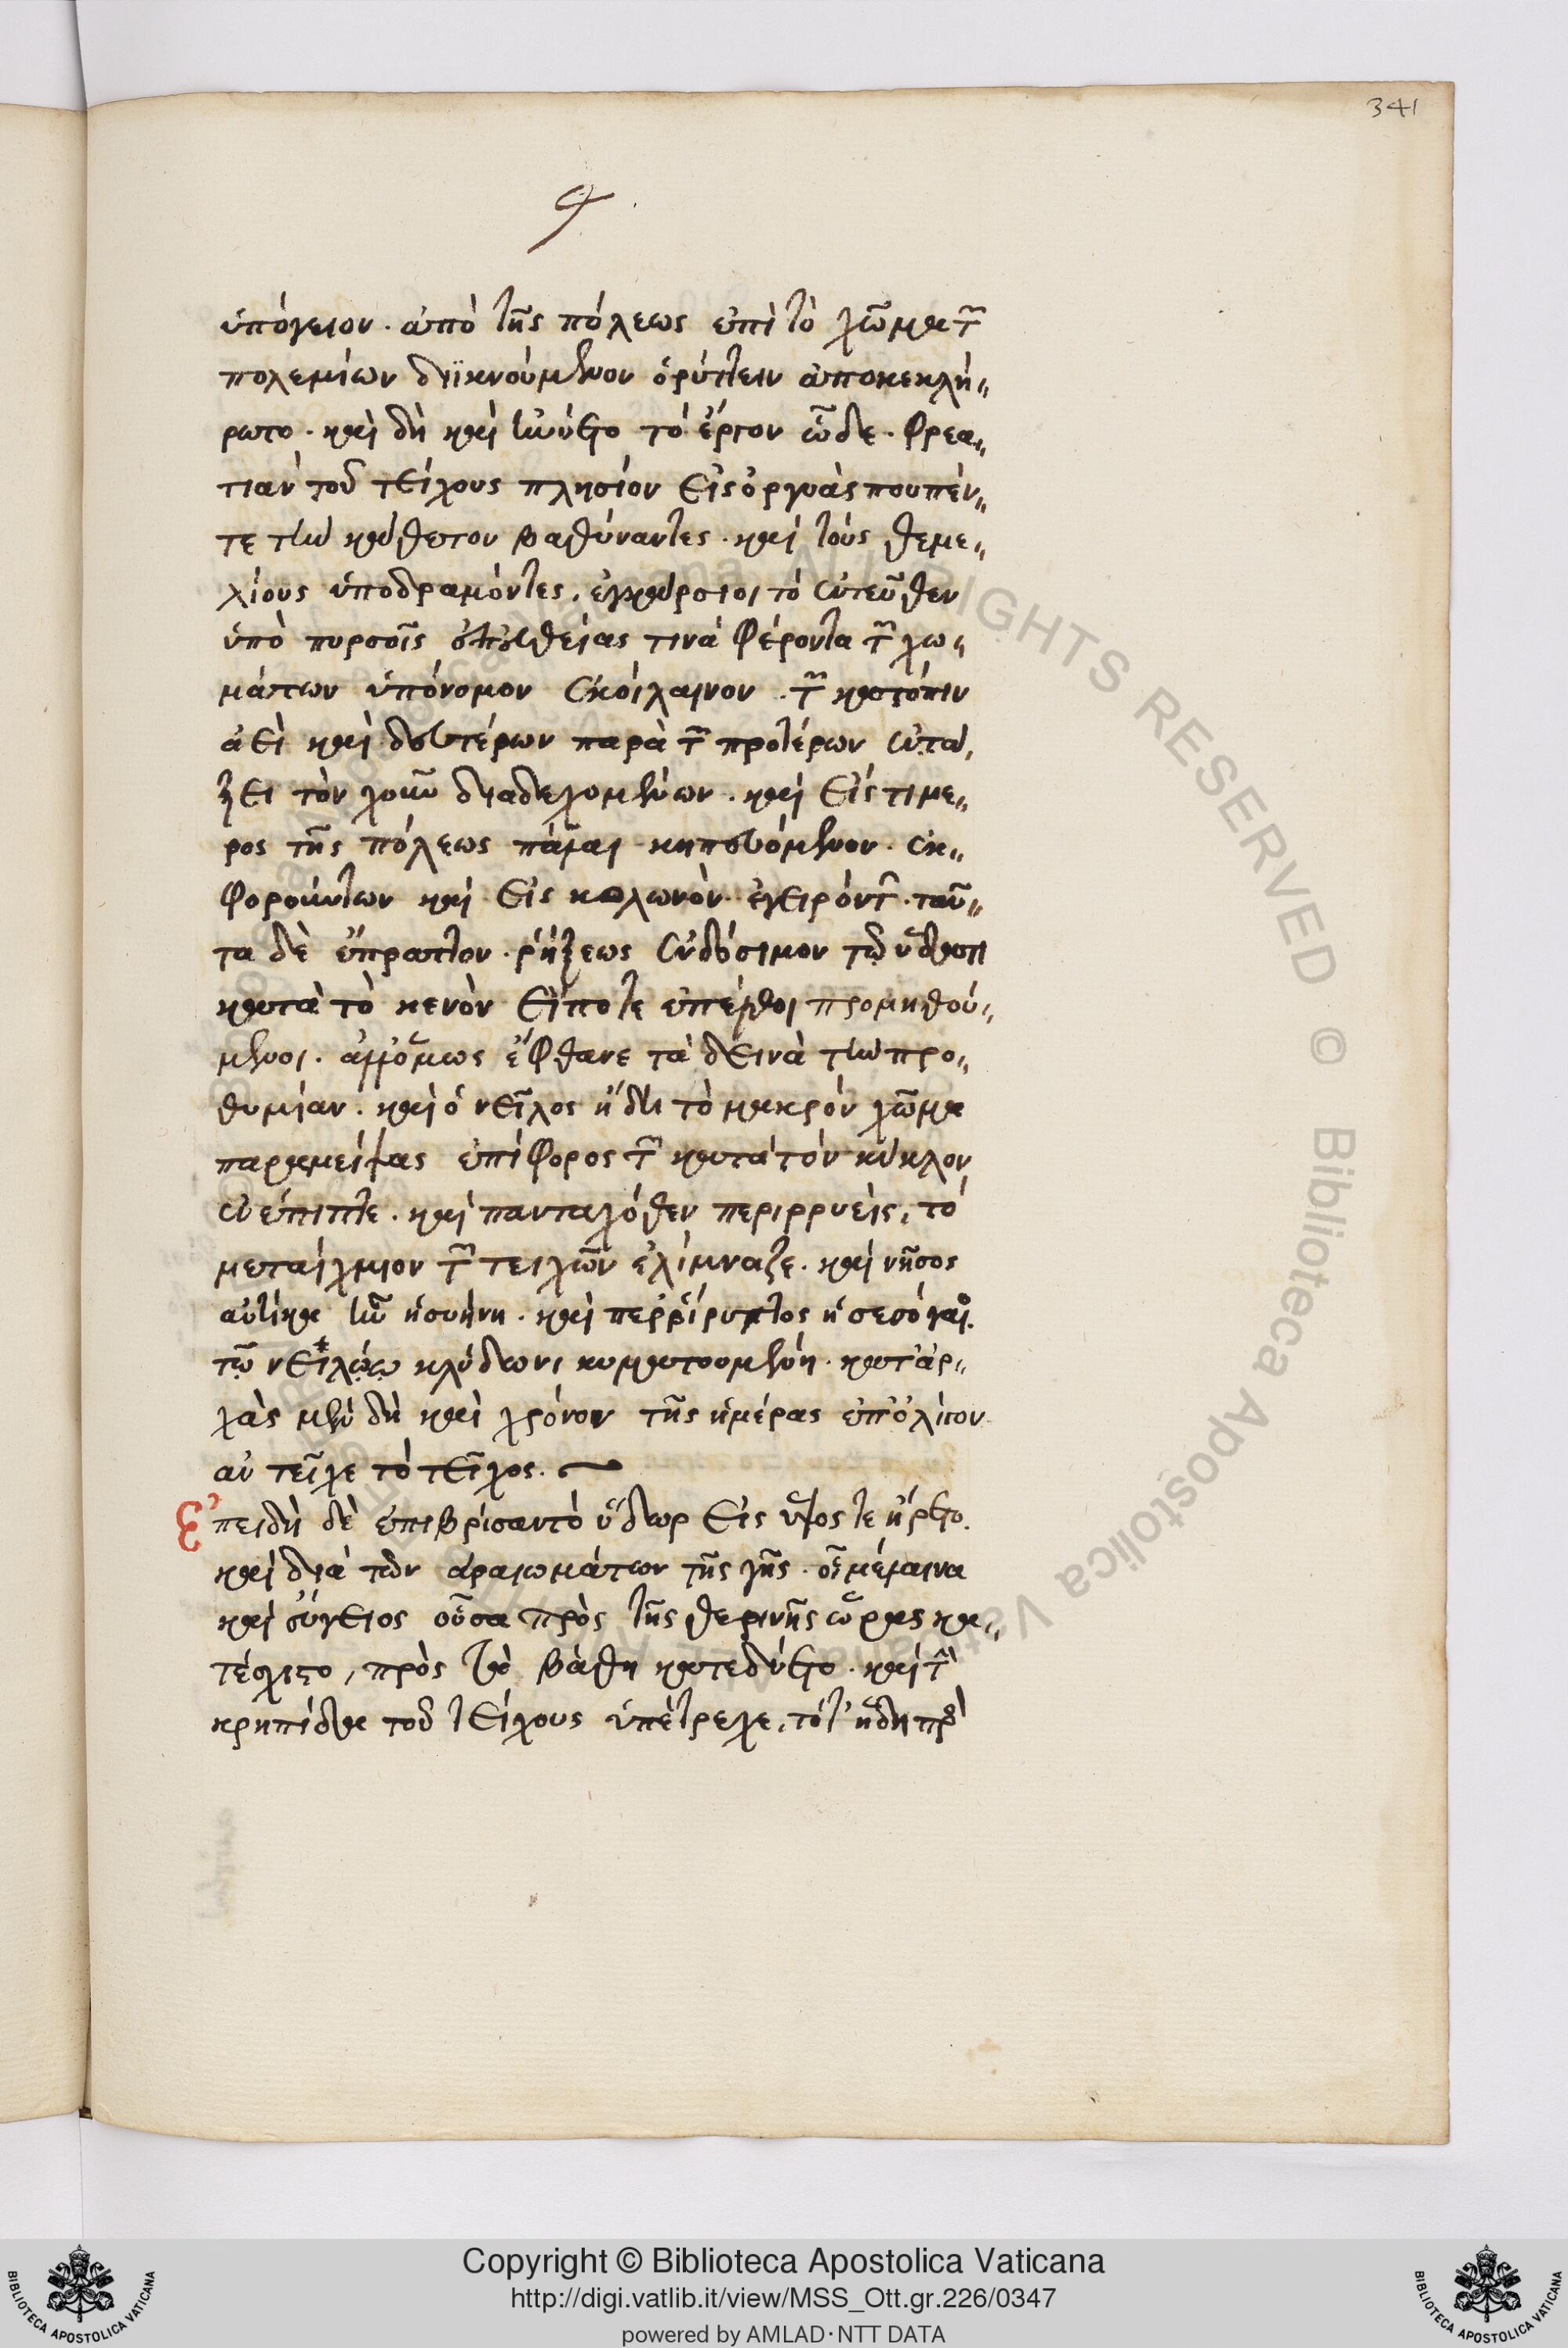 341
ὑπόγειον. ἀπὸ τῆς πόλεως ἐπὶ τὸ χῶμα τῶν
πολεμίων διϊκνούμενον ὀρύττειν ἀποκεκλή-
ρωτο. καὶ δὴ καὶ ἠνύετο τὸ ἔργον ὧδε. φρεα-
τίαν τοῦ τείχους πλησίον εἰς ὀργυὰς που πέν-
τε τὴν κάθετον βαθύναντες. καὶ τοὺς θεμε-
λίους ὑποδραμόντες, ἐγκάρσιοι τὸ ἐντεῦθεν
ὑπὸ πυρσοῖς ἐπ' εὐθείας τινὰ φέροντα τῶν χω-
μάτων ὑπόνομον ἐκοίλαινον. τῶν κατόπιν
ἀεὶ καὶ δευτέρων παρὰ τῶν προτέρων ἐν τά-
ξει τὸν χοῦν διαδεχομένων. καὶ εἴς τι μέ-
ρος τῆς πόλεως πάλαι κηπευόμενον. ἐκ-
φορούντων καὶ εἰς κολωνὸν ἐγειρόντων. ταῦ-
τα δὲ ἔπραττον. ῥήξεως ἐνδόσιμον τῷ ὕδατι
κατὰ τὸ κενὸν εἴποτε ἐπέλθοι προμηθού-
μενοι. ἀλλ' ὅμως ἔφθανε τὰ δεινὰ τὴν προ-
θυμίαν. καὶ ὁ νεῖλος ἤδη τὸ μακρὸν χῶμα
παραμείψας ἐπίφορος τῷ κατὰ τὸν κύκλον
ἐνέπιπτε. καὶ πανταχόθεν περιρρυείς, τὸ
μεταίχμιον τῶν τειχῶν ἐλίμναζε. καὶ νῆσος
αὐτίκα ἦν ἡ συήνη. καὶ περίρρυτος ἡ μεσόγαιος
τῷ νειλώῳ κλύδωνι κυματουμένη. κατ' ἀρ-
χὰς μὲν δὴ καὶ χρόνον τῆς ἡμέρας ἐπ' ὀλίγον
ἀντεῖχε τὸ τεῖχος.
Ἐπειδὴ δὲ ἐπιβρίσαν τὸ ὕδωρ εἰς ὕψος τε ᾔρετο.
καὶ διὰ τῶν ἀραιωμάτων τῆς γῆς. οἷα μέλαινα
καὶ εὔγειος οὖσα πρὸς τῆς θερινῆς ὥρας κα-
τέσχιστο, πρὸς τὸ βάθη κατεδύετο. καὶ τὴν
κρηπίδα τοῦ τείχους ὑπέτρεχε, τότ' ἤδη πρὸς
Copyright © Biblioteca Apostolica Vaticana
http://digi.vatlib.it/view/MSS_Ott.gr.226/0347
powered by AMLAD·NTT DATA